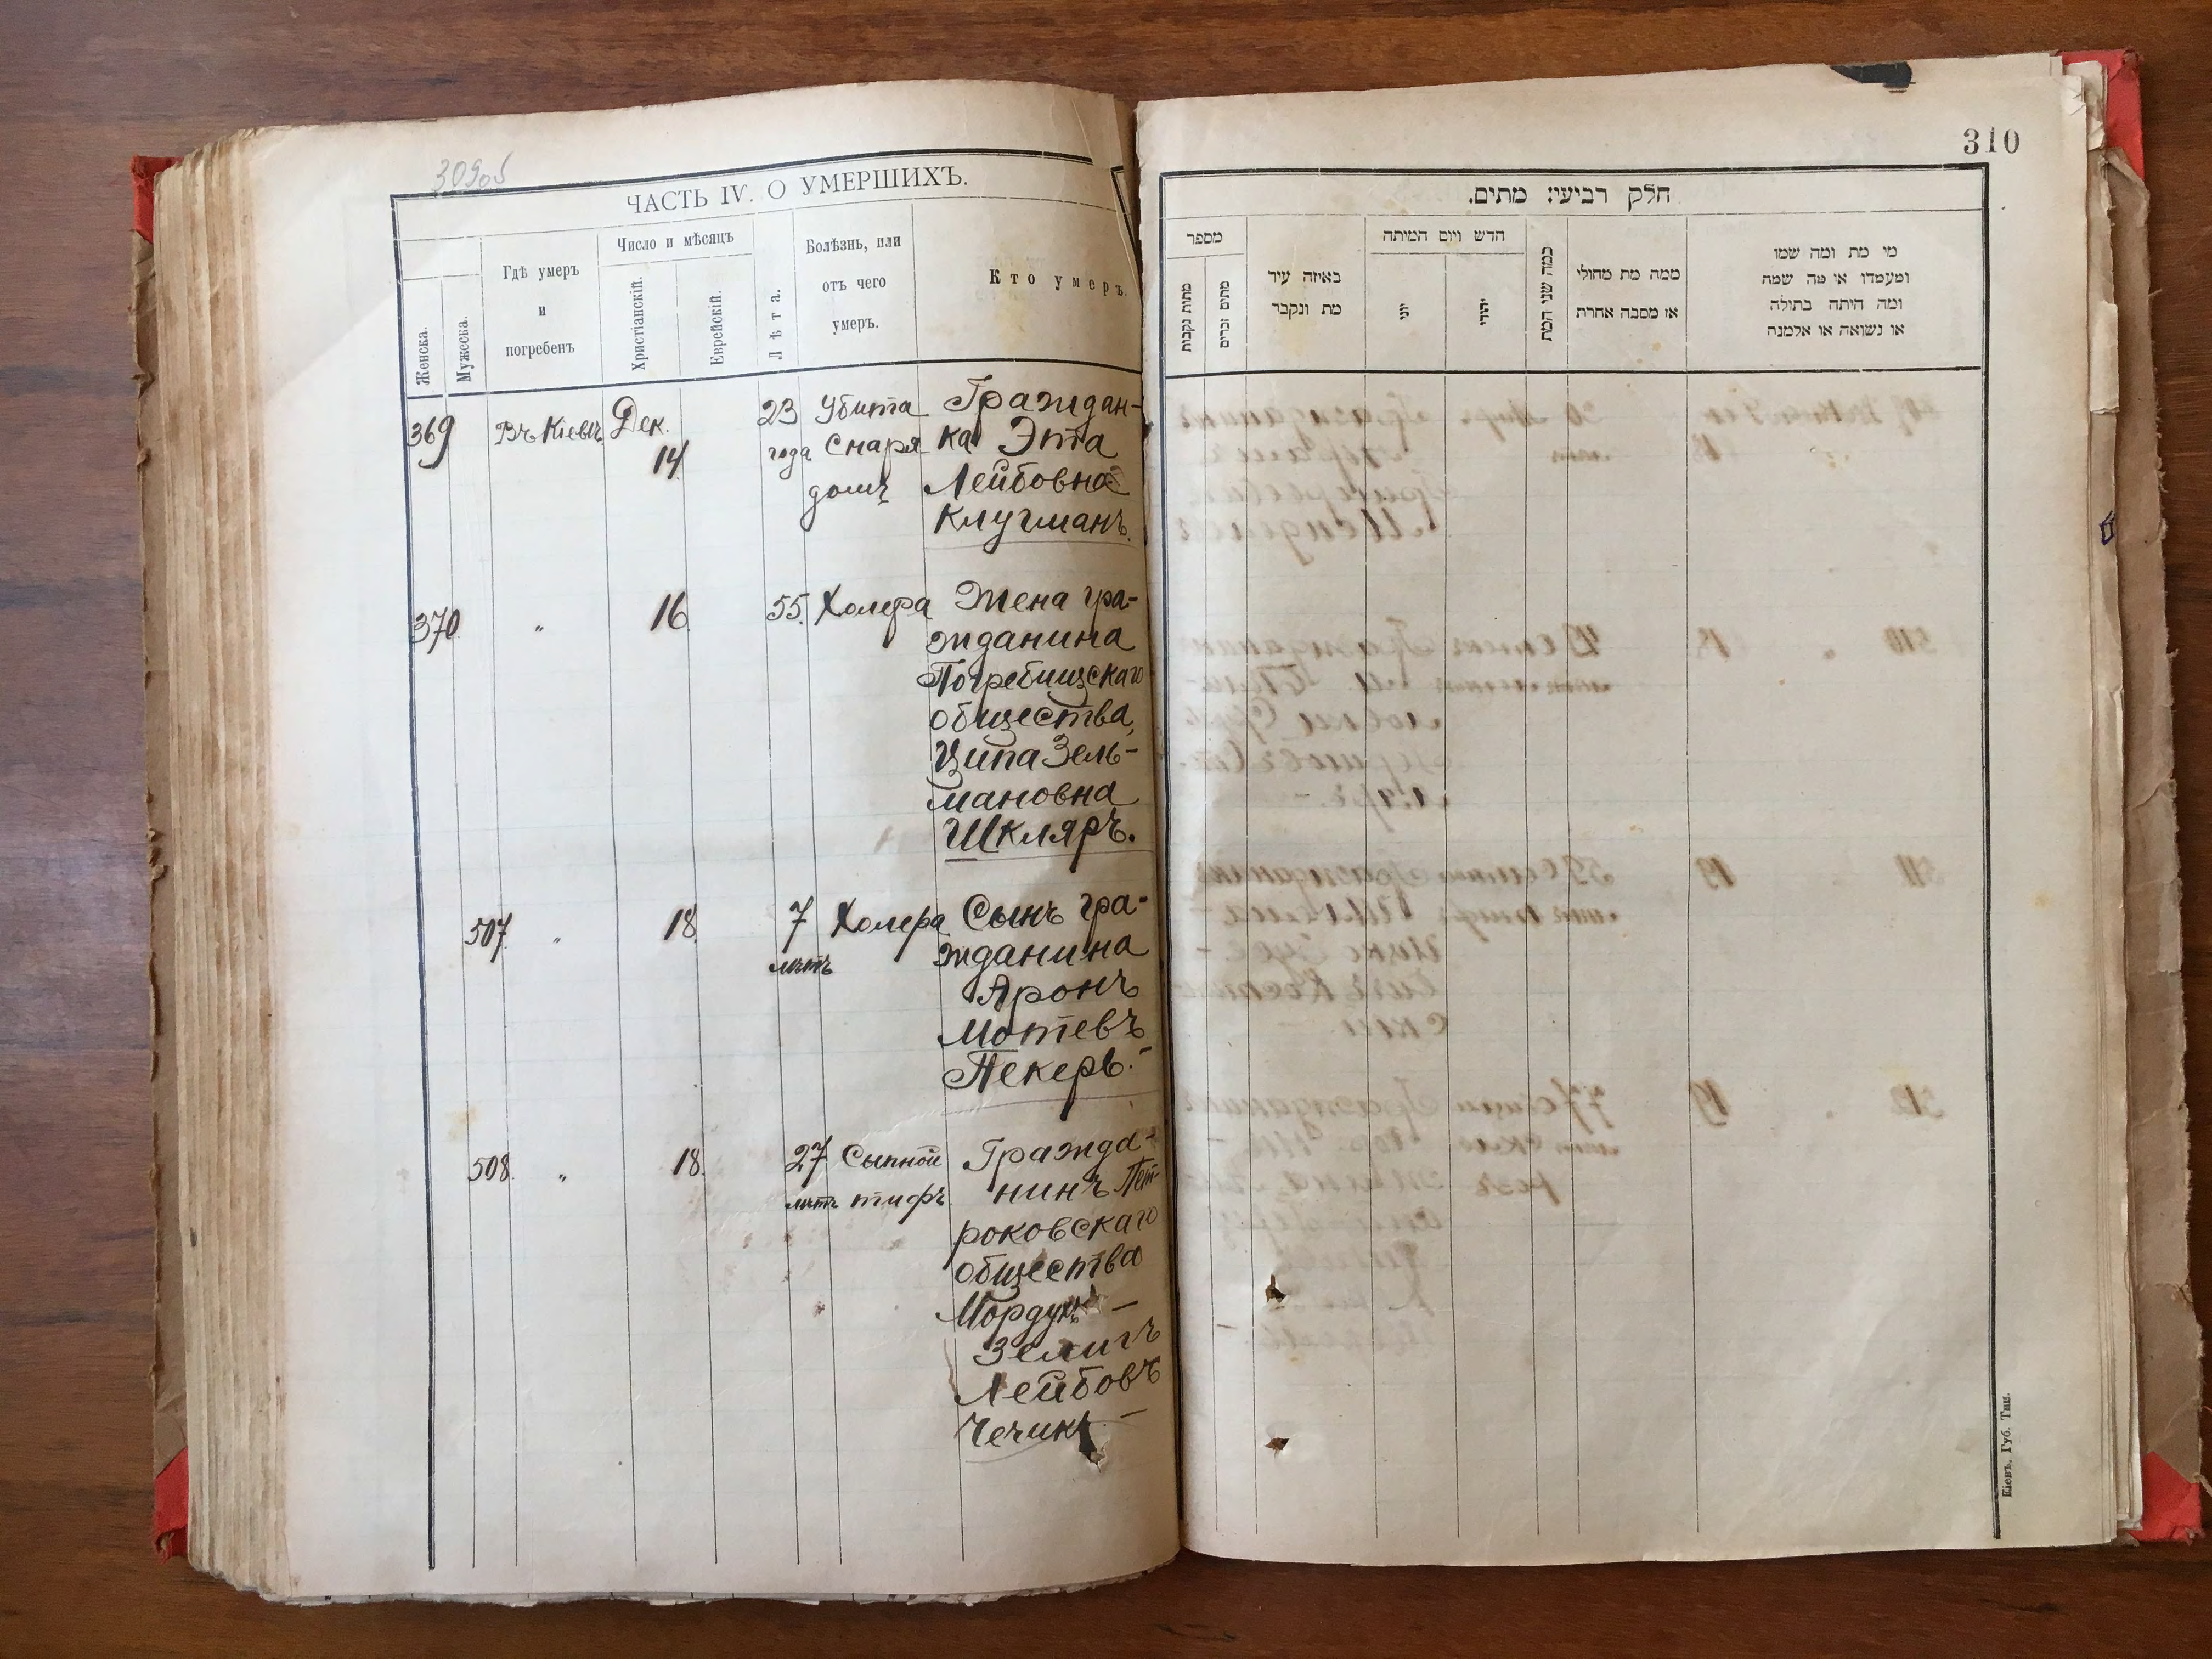 309об
ЧАСТЬ IV. О УМЕРШИХЪ.
Женска.
Мужеска.
Гдѣ умеръ
и
погребенъ
Число и мѣсяцъ
Христіанскій.
Еврейскій.
Лѣта.
Болѣзнь, или
отъ чего
умеръ.
Кто умеръ.
369 Въ Кіевѣ Дек. 14 23 года
Убита
Снаря
домъ
Граждан-
ка Эта
Лейбовна
Клугманъ.
370 " 16 55. Холера
Жена гра-
жданина
Погребищскаго
общества,
Ципа Зель-
мановна
Шкляръ.
507 " 18. 7 лѣтъ Холера
Сынъ гра-
жданина
Аронъ
Мотевъ
Пекеръ.-
508 " 18. 27 лѣтъ
Сыпной
тифъ.
Гражда-
нинъ Пет-
роковскаго
общества
Мордухъ -
Зелигъ
Лейбовъ
Чечикъ -
310
חלק רביעי: מתים.
מספר
מתות נקבות
מתים זכרים
באיזה עיר
מת ונקבר
חדש ויום המיתה
יוני
יהודי
כמה שני המת
ממה מת מחולי
או מסבה אחרת
מי מת ומה שמו
ומעמדו או מה שמה
ומה היתה בתולה
או נשואה או אלמנה
Кіевъ, Губ. Тип.